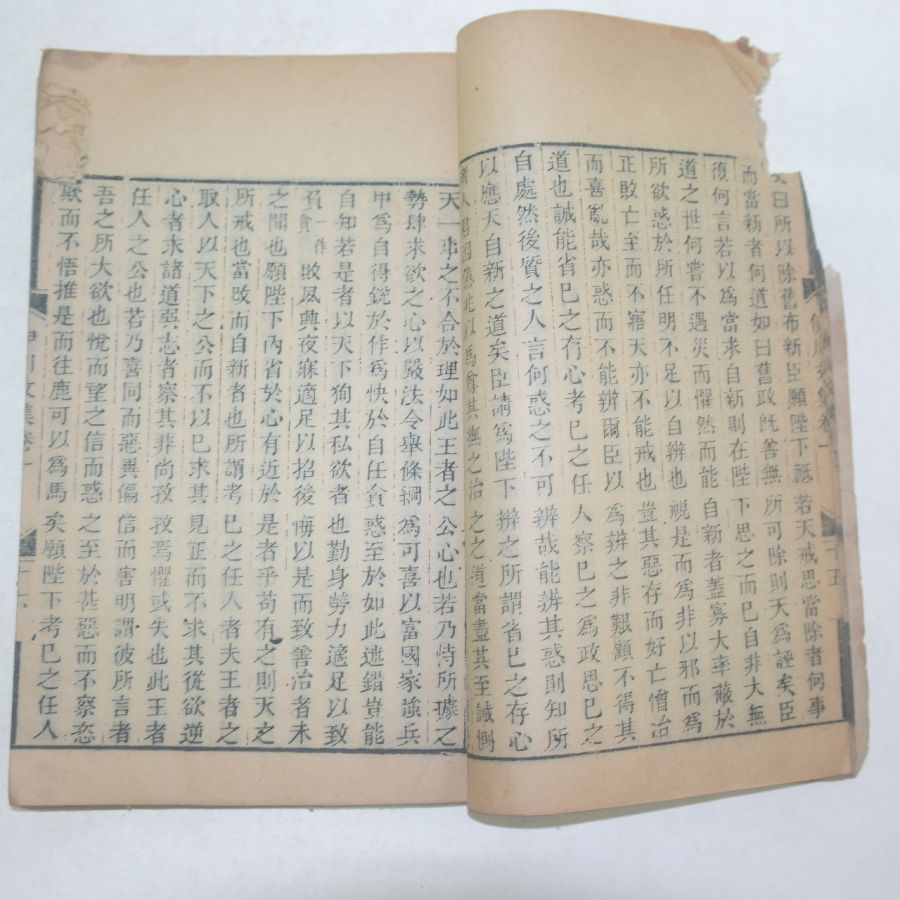 曰所以除舊布新臣願陛下祗若天戒思當除者何事
而當新者何道如曰舊政旣善無所可除則天爲誣矣臣
復何言若以爲當求自新則在陛下思之而已自非大無
道之世何嘗不遇災而懼然而能自新者蓋寡大率蔽於
所欲惑於所任明不足以自辨也視是而爲非以邪而爲
正敗亡至而不寤天亦不能戒也豈其惡存而好亡憎治
而喜亂哉亦惑而不能辨爾臣以爲辨之非艱顧不得其
道也誠能省已之存心考已之任人察已之爲政思已之
自處然後質之人言何惑之不可辨哉能辨其惑則知所
以應天自新之道矣臣請爲陛下辨之所謂省已之存心
者人君因億兆以爲尊其撫之治之之道當盡其至誠惻
天一事之不合於理如此王者之公心也若乃恃所據之
勢肆求欲之心以嚴法令舉條綱爲可喜以富國家強兵
甲爲自得銳於作爲快於自任貪惑至於如此迷錯豈能
自知若是者以天下狥其私欲者也勤身勞力適足以致
負一作貪敗夙興夜寐適足以招後悔以是而致善治者未
之聞也願陛下內省於心有近於是者乎苟有之則天之
所戒也當改而自新者也所謂考已之任人者夫王者之
取人以天下之公而不以已求其見正而不求其從欲逆
心者求諸道巽志者察其非尚孜孜焉懼或失也此王者
任人之公也若乃喜同而惡異偏信而害明謂彼所言者
吾之所大欲也悅而望之信而惑之至於甚惡而不察恣
欺而不悟推是而往鹿可以爲馬矣願陛下考已之任人
伊川文集卷一